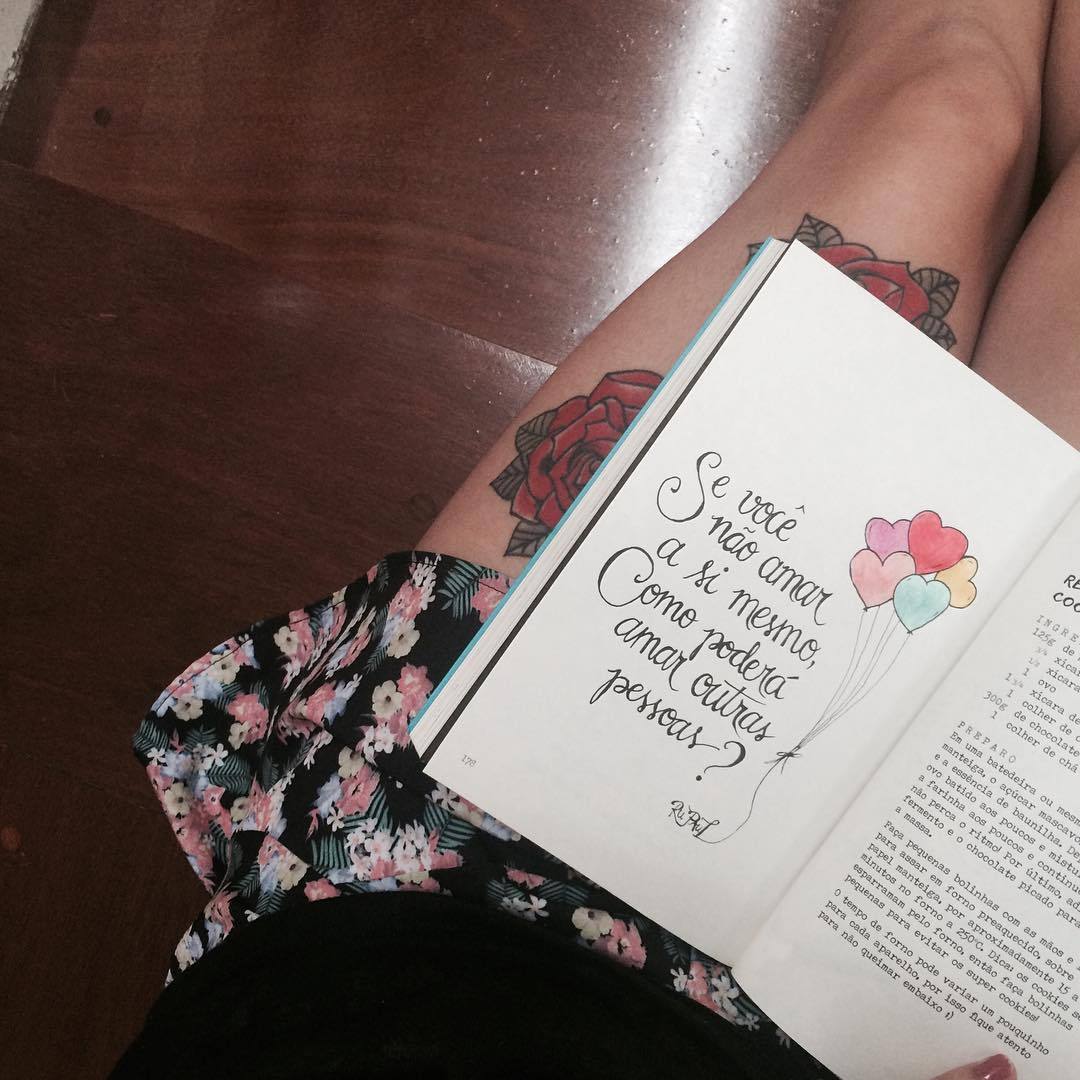 Se você
não amar
a si mesmo,
Como poderá
amar outras
pessoas?
RuPaul
178
INGRE
125g de
¾ xícar
½ xícara
1 ovo
1 ¾ xícara de
1 colher de c
300g de chocolate
1 colher de chá
PREPARO
Em uma batedeira ou mesm
manteiga, o açúcar mascavo
e a essência de baunilha. De
ovo batido aos poucos e mistur
a farinha aos poucos e continu
não perca o ritmo! Por último, ad
fermento e o chocolate picado para
a massa.
Faça pequenas bolinhas com as mãos e
para assar em forno preaquecido, sobre
papel manteiga, por aproximadamente 15 a
minutos no forno a 250ºC. Dica: os cookies se
esparramam pelo forno, então faça bolinhas
pequenas para evitar os super cookies!
O tempo de forno pode variar um pouquinho
para cada aparelho, por isso fique atento
para não queimar embaixo :)